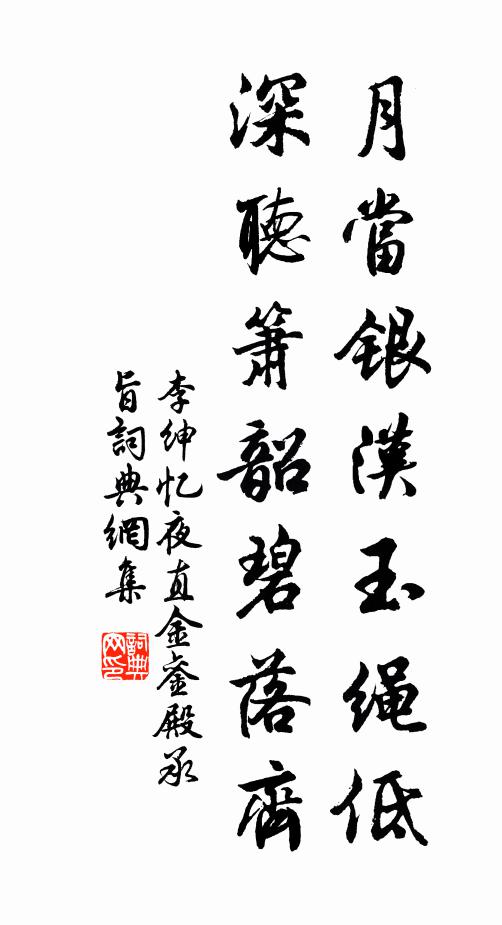 月當銀漢玉繩低
深聽簫韶碧落齊
李紳忆夜直金銮殿承
旨詞典網集
詞典网印